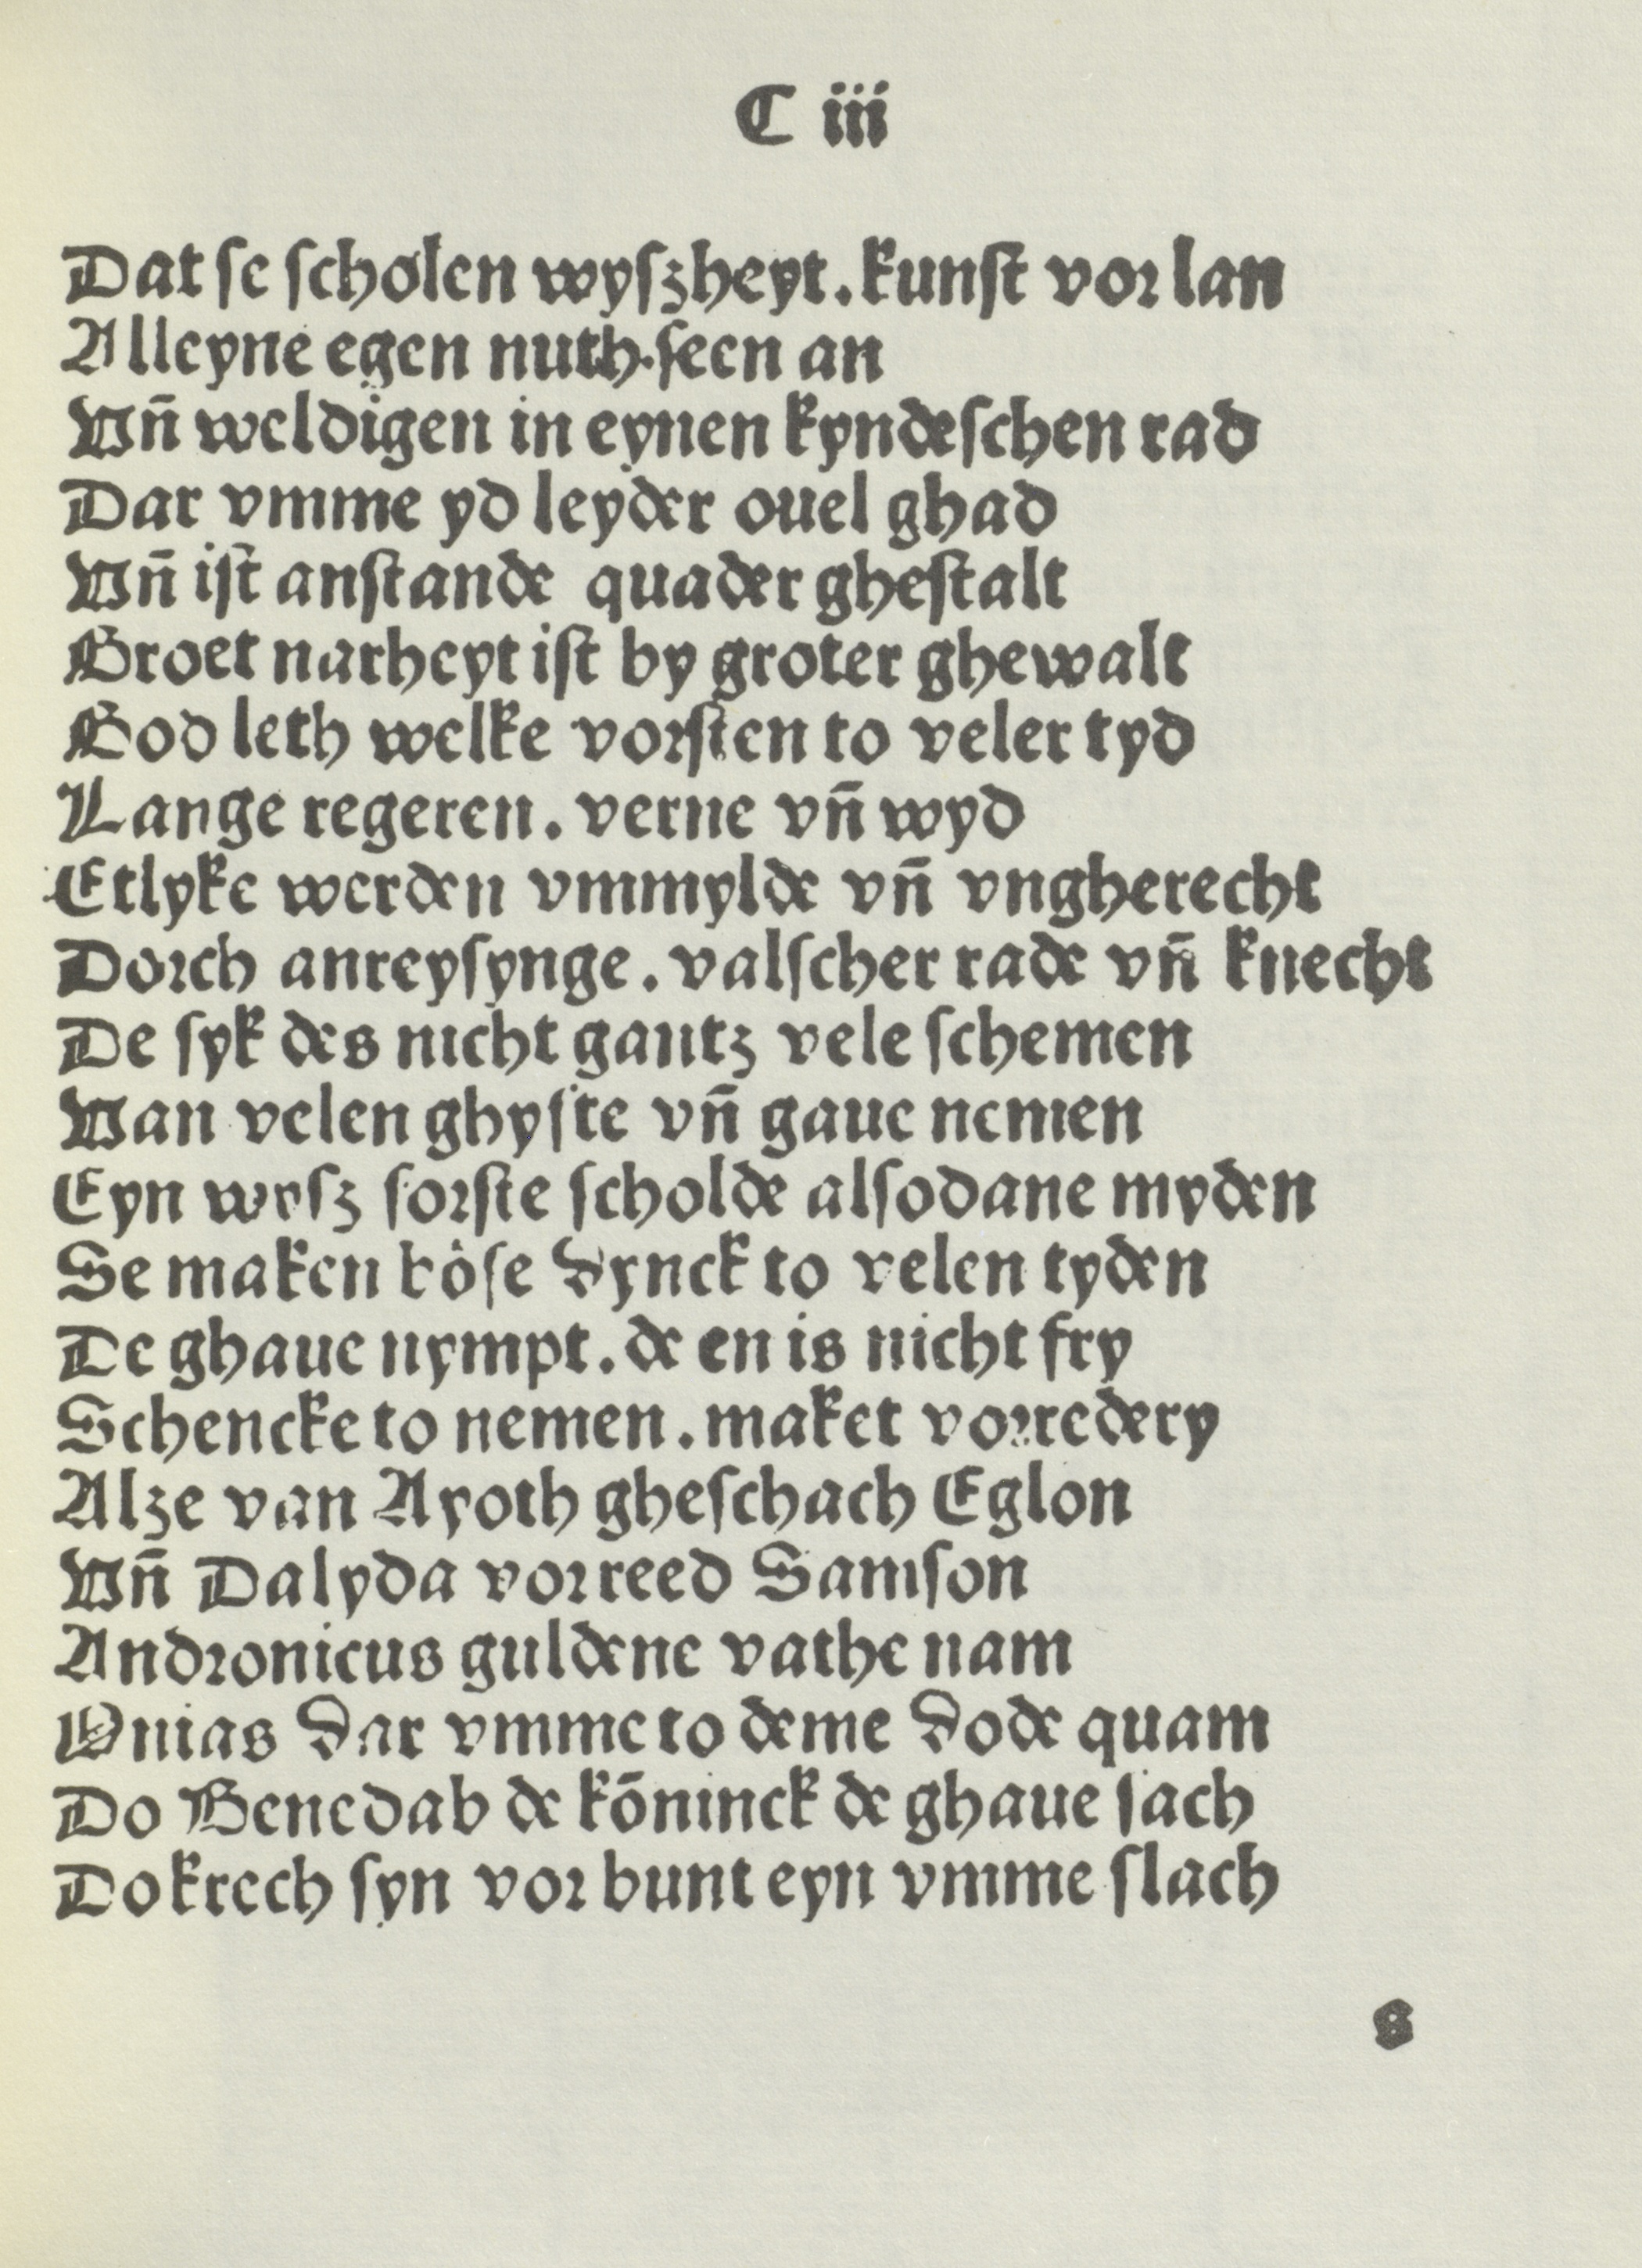 C iii
Dat ſe ſcholen wyſzheyt. kunſt vor lan
Alleyne egen nuth. ſeen an
Vn̄ weldigen in eynen kyndeſchen rad
Dar vmme yd leyder ouel ghad
Vn̄ iſt anſtande quader gheſtalt
Groet narheyt iſt by groter ghewalt
God leth welke vorſten to veler tyd
Lange regeren. verne vn̄ wyd
Etlyke werden vmmylde vn̄ vngherecht
Dorch anreyſynge. valſcher rade vn̄ knecht
De ſyk des nicht gantz vele ſchemen
Van velen ghyſte vn̄ gaue nemen
Eyn wyſz forſte ſcholde alſodane myden
Se maken böſe dynck to velen tyden
De ghaue nympt. de en is nicht fry
Schencke to nemen. maket vorredery
Alze van Ayoth gheſchach Eglon
Vn̄ Dalyda vorreed Samſon
Andronicus guldene vathe nam
Onias dar vmme to deme dode quam
Do Benedab de kōninck de ghaue ſach
Do krech ſyn vor bunt eyn vmme ſlach
s